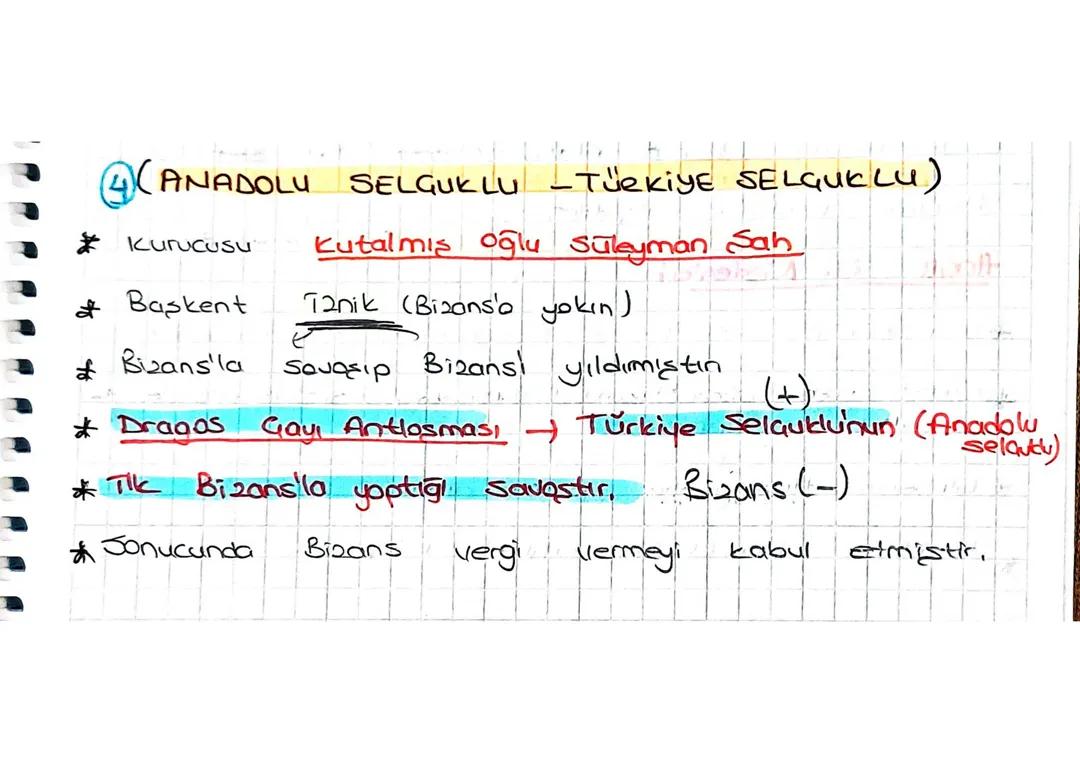 4 (ANADOLU SELÇUKLU - TÜRKİYE SELÇUKLU)
* Kurucusu Kutalmış oğlu Süleyman Şah
* Başkent İznik (Bizans'a yakın)
* Bizans'la savaşıp Bizans'ı yıldırmıştır
(+)
* Dragos Çayı Antlaşması → Türkiye Selçuklu'nun (Anadolu
selçuklu)
* İlk Bizans'la yaptığı savaştır. Bizans (-)
* Sonucunda Bizans vergi vermeyi kabul etmiştir.